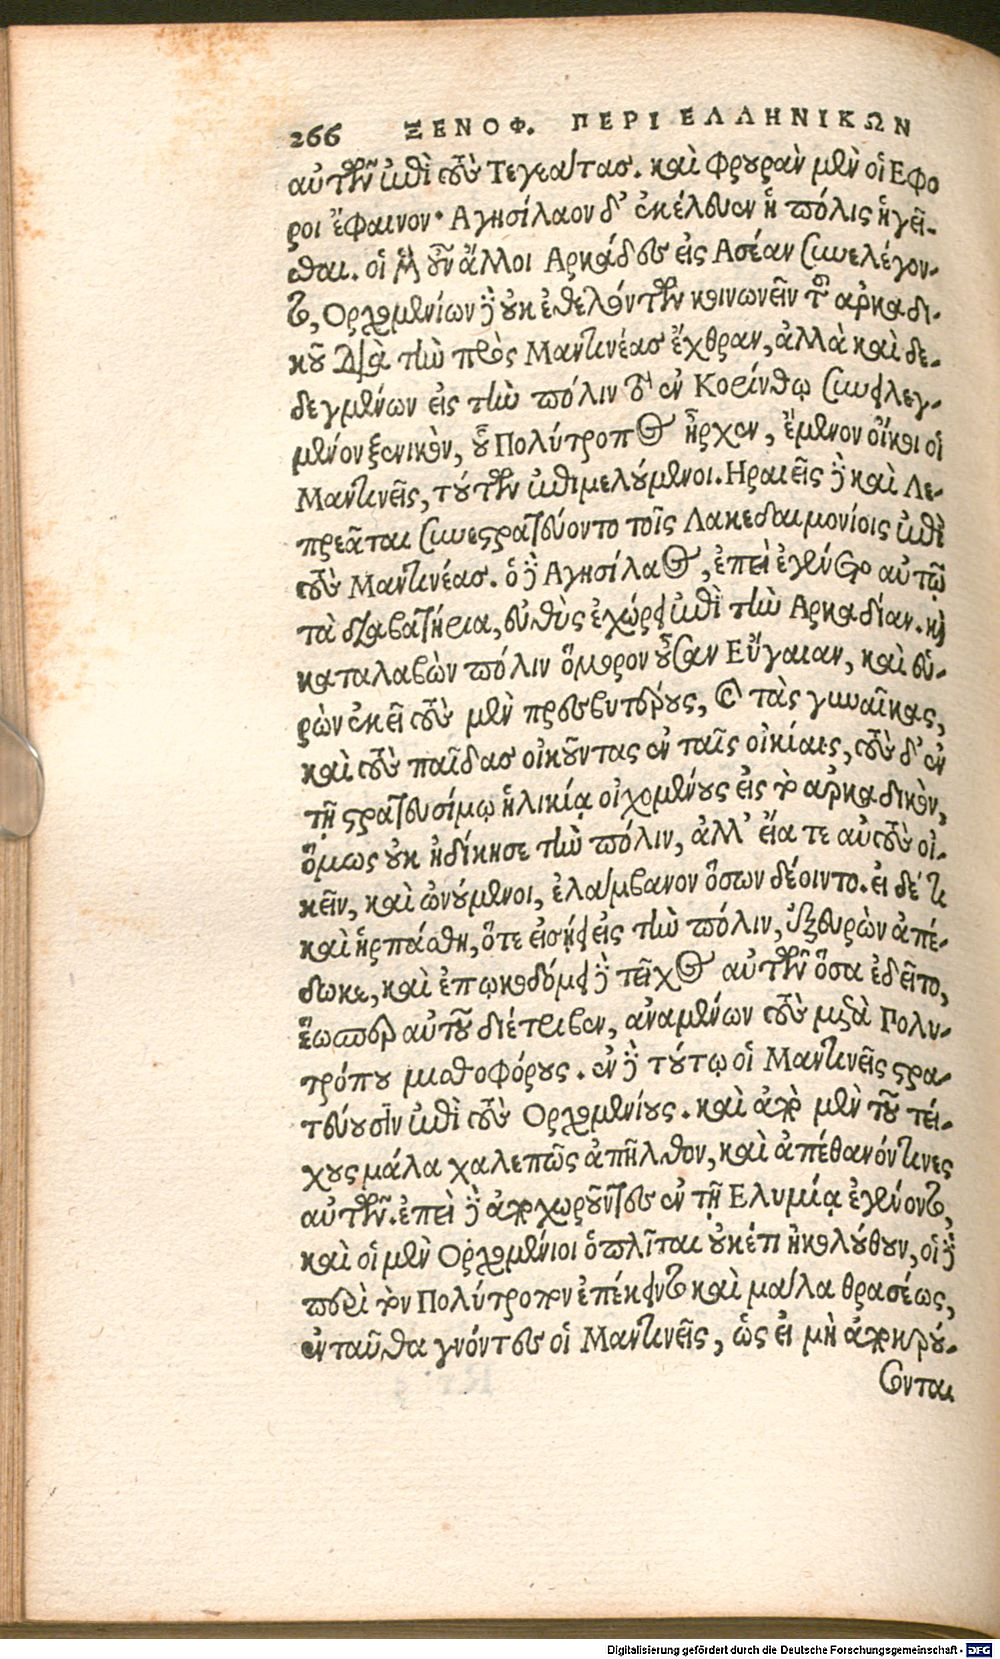 266 ΞΕΝΟΦ. ΠΕΡΙ ΕΛΛΗΝΙΚΩΝ
αὐτῶν ἐπὶ τοὺς Τεγεάτας. καὶ φρουρὰν μὲν οἱ Εφο
ροι ἔφαινον· Αγησίλαον δ' ἐκέλευεν ἡ πόλις ἡγεῖ-
σθαι. οἱ μὲν οὖν ἄλλοι Αρκάδες εἰς Ασέαν συνελέγον-
το, Ορχομενίων δὲ οὐκ ἐθελόντων κοινωνεῖν τοῦ ἀρκαδι-
κοῦ διὰ τὴν πρὸς Μαντινέας ἔχθραν, ἀλλὰ καὶ δε-
δεγμένων εἰς τὴν πόλιν τὸ ἐν Κορίνθῳ συνειλεγ-
μένον ξενικὸν, οὗ Πολύτροπος ἦρχεν, ἔμενον οἴκοι οἱ
Μαντινεῖς, τούτων ἐπιμελούμενοι. Ηραιεῖς δὲ καὶ Λε-
πρεᾶται συνεστρατεύοντο τοῖς Λακεδαιμονίοις ἐπὶ
τοὺς Μαντινέας. ὁ δὲ Αγησίλαος, ἐπεὶ ἐγένετο αὐτῷ
τὰ διαβατήρια, εὐθὺς ἐχώρει ἐπὶ τὴν Αρκαδίαν. καὶ
καταλαβὼν πόλιν ὅμορον οὖσαν Εὔγαιαν, καὶ εὑ-
ρὼν ἐκεῖ τοὺς μὲν πρεσβυτέρους, καὶ τὰς γυναῖκας,
καὶ τοὺς παῖδας οἰκοῦντας ἐν ταῖς οἰκίαις, τοὺς δ' ἐν
τῇ στρατευσίμῳ ἡλικίᾳ οἰχομένους εἰς τὸ ἀρκαδικὸν,
ὅμως οὐκ ἠδίκησε τὴν πόλιν, ἀλλ' εἴα τε αὐτοὺς οἰ-
κεῖν, καὶ ὠνούμενοι, ἐλάμβανον ὅσων δέοιντο. εἰ δέ τι
καὶ ἡρπάσθη, ὅτε εἰσῄει εἰς τὴν πόλιν, ἐξευρὼν ἀπέ-
δωκε, καὶ ἐπῳκοδόμει δὲ τεῖχος αὐτῶν ὅσα ἐδεῖτο,
ἕωσπερ αὐτοῦ διέτριβεν, ἀναμένων τοὺς μετὰ Πολυ-
τρόπου μισθοφόρους. ἐν δὲ τούτῳ οἱ Μαντινεῖς στρα-
τεύουσιν ἐπὶ τοὺς Ορχομενίους. καὶ ἀπὸ μὲν τοῦ τεί-
χους μάλα χαλεπῶς ἀπῆλθον, καὶ ἀπέθανόν τινες
αὐτῶν. ἐπεὶ δὲ ἀποχωροῦντες ἐν τῇ Ελυμίᾳ ἐγένοντο,
καὶ οἱ μὲν Ορχομένιοι ὁπλῖται οὐκέτι ἠκολούθουν, οἱ δὲ
περὶ τὸν Πολύτροπον ἐπέκειντο καὶ μάλα θρασέως,
ἐνταῦθα γνόντες οἱ Μαντινεῖς, ὡς εἰ μὴ ἀποκρού-
σονται
Digitalisierung gefördert durch die Deutsche Forschungsgemeinschaft - DFG